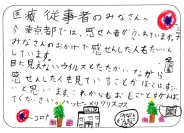 医療従事者のみなさんへ
東京都では、感せん者がふえています。
みなさんのおかげで感せんした人もたいいんしています。
目に見えないウイルスとたたかいながら
感せんした人を見ていることがすごいと思います。これからもお
してください。
ハッピーメリクリスマス
コロナ